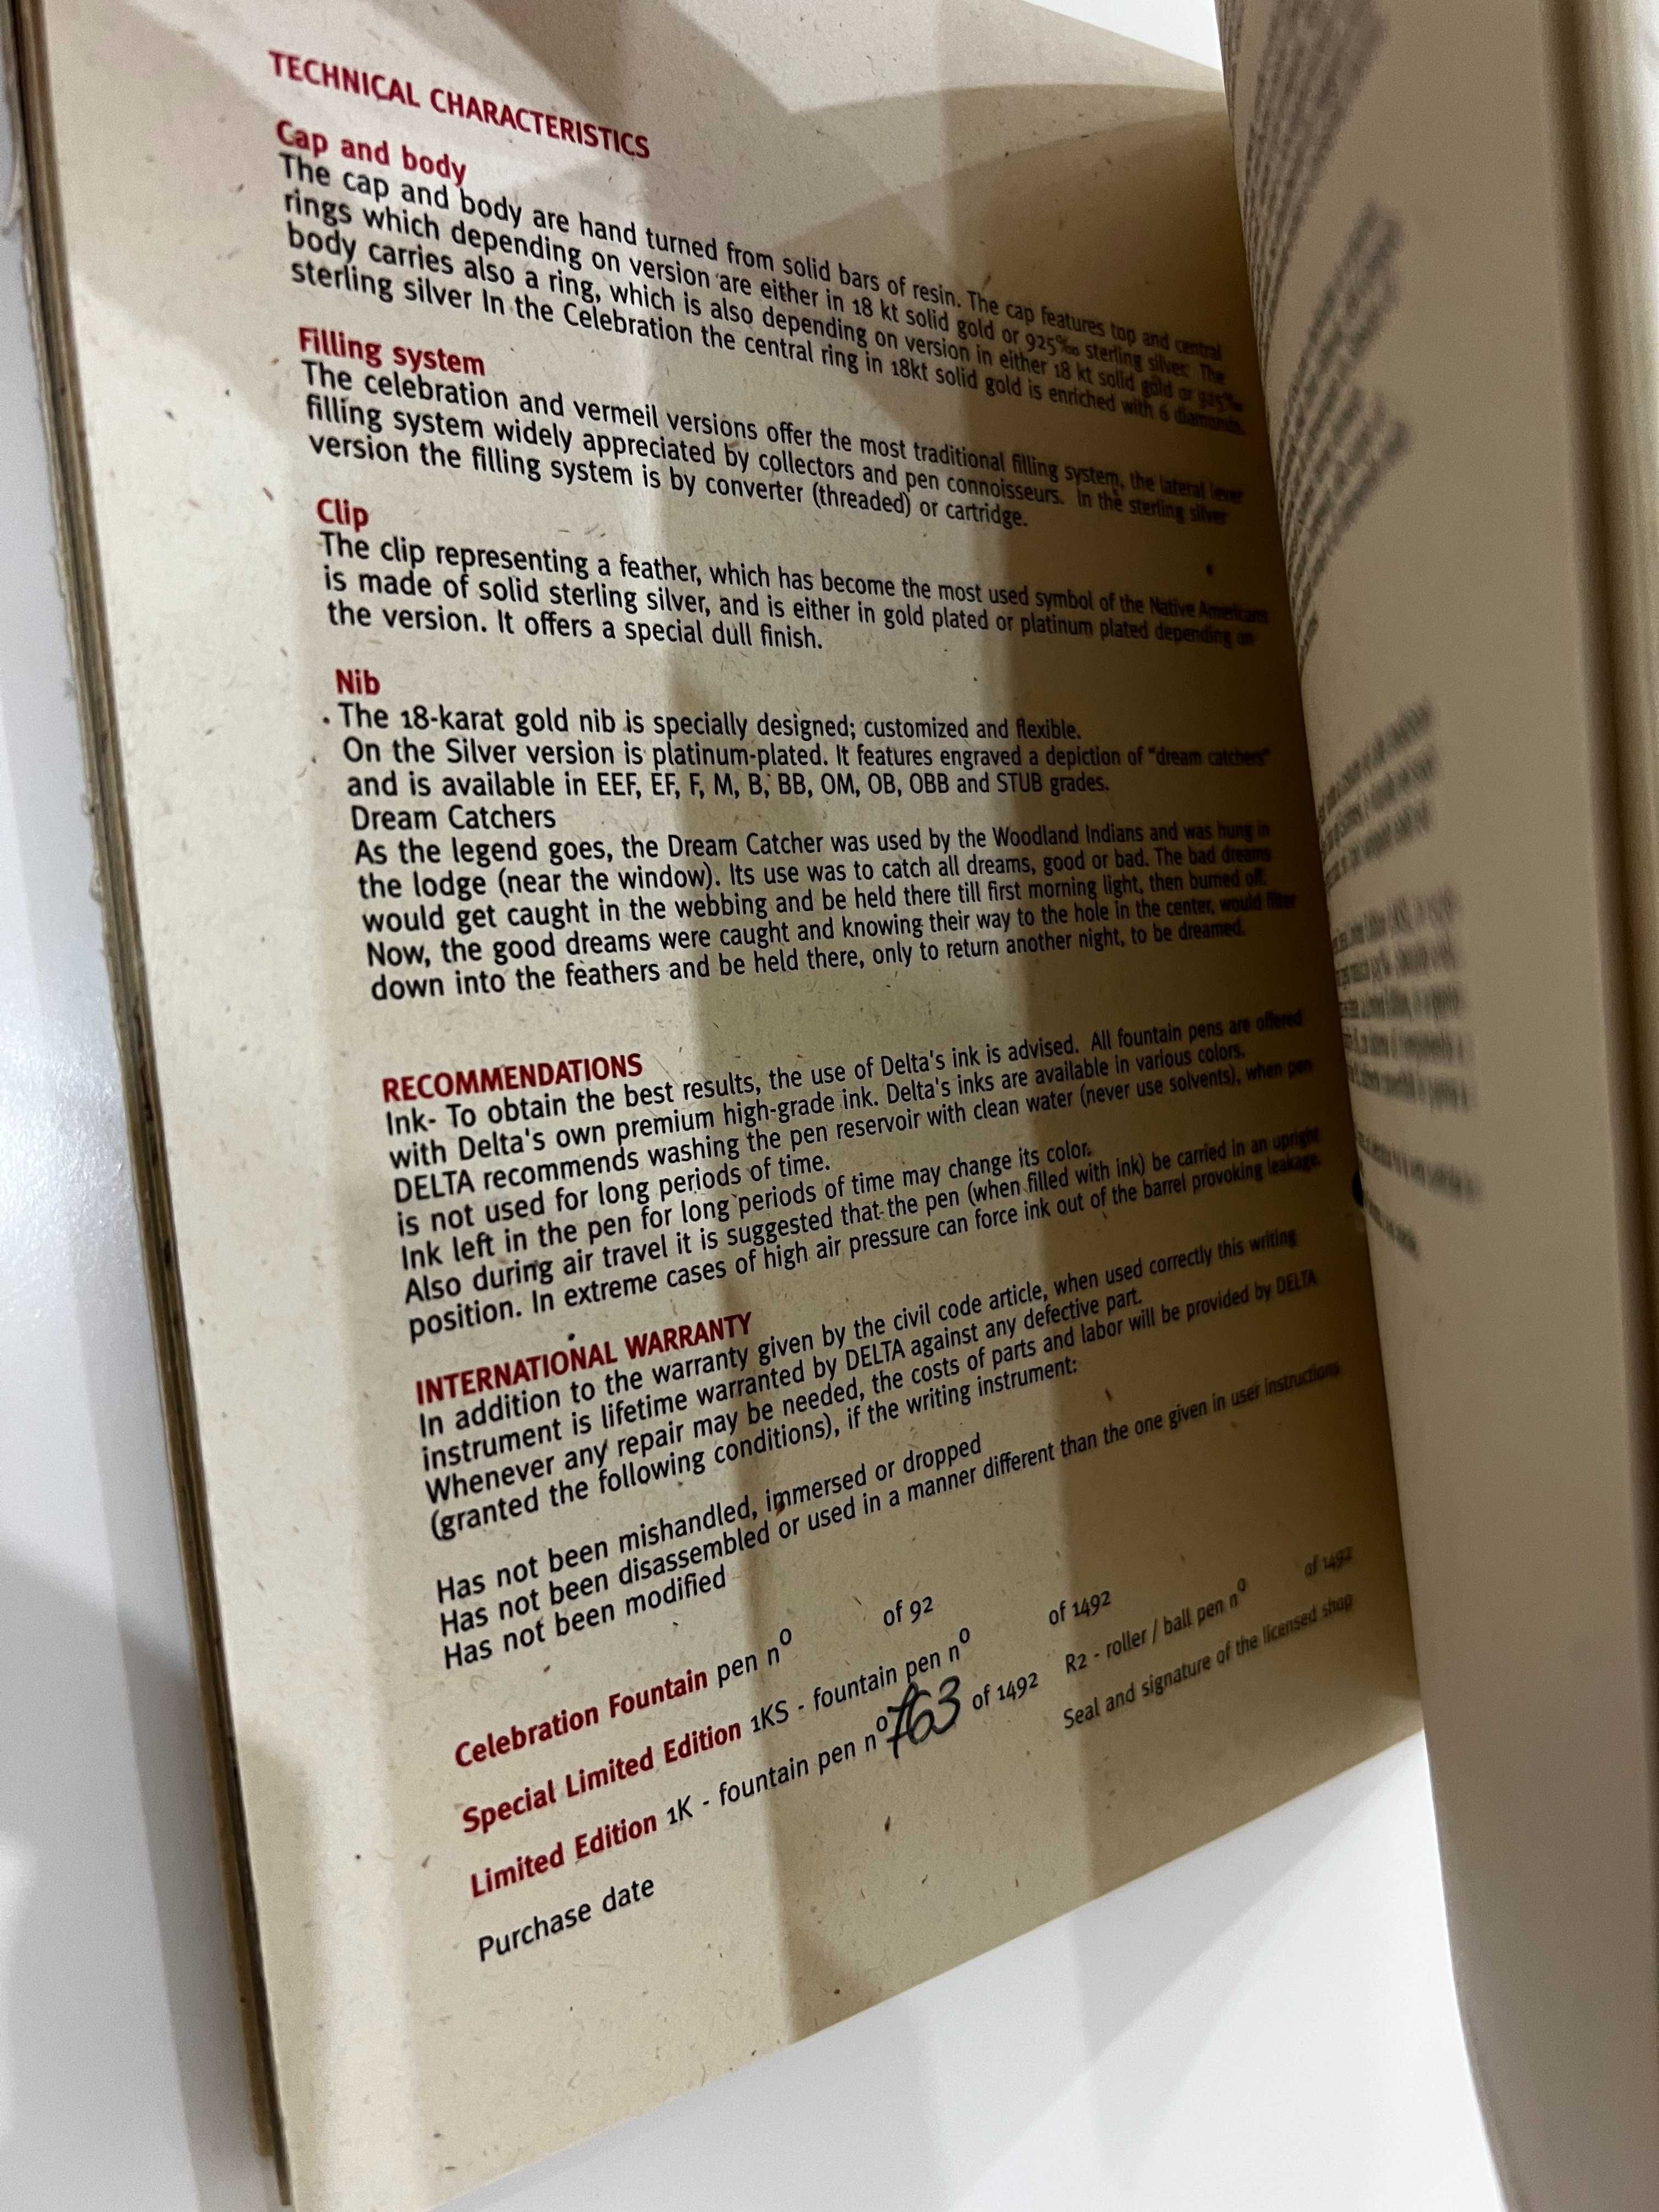 TECHNICAL CHARACTERISTICS
Cap and body
The cap and body are hand turned from solid bars of resin. The cap features top and central
rings which depending on version are either in 18 kt solid gold or 925‰ sterling silver. The
body carries also a ring, which is also depending on version in either 18 kt solid gold or 925‰
sterling silver In the Celebration the central ring in 18kt solid gold is enriched with 6 diamonds.
Filling system
The celebration and vermeil versions offer the most traditional filling system, the lateral lever
filling system widely appreciated by collectors and pen connoisseurs. In the sterling silver
version the filling system is by converter (threaded) or cartridge.
Clip
The clip representing a feather, which has become the most used symbol of the Native Americans
is made of solid sterling silver, and is either in gold plated or platinum plated depending on
the version. It offers a special dull finish.
Nib
The 18-karat gold nib is specially designed; customized and flexible.
On the Silver version is platinum-plated. It features engraved a depiction of "dream catchers"
and is available in EEF, EF, F, M, B, BB, OM, OB, OBB and STUB grades.
Dream Catchers
As the legend goes, the Dream Catcher was used by the Woodland Indians and was hung in
the lodge (near the window). Its use was to catch all dreams, good or bad. The bad dreams
would get caught in the webbing and be held there till first morning light, then burned off.
Now, the good dreams were caught and knowing their way to the hole in the center, would filter
down into the feathers and be held there, only to return another night, to be dreamed.
RECOMMENDATIONS
Ink- To obtain the best results, the use of Delta's ink is advised. All fountain pens are offered
with Delta's own premium high-grade ink. Delta's inks are available in various colors.
DELTA recommends washing the pen reservoir with clean water (never use solvents), when pen
is not used for long periods of time.
Ink left in the pen for long periods of time may change its color.
Also during air travel it is suggested that the pen (when filled with ink) be carried in an upright
position. In extreme cases of high air pressure can force ink out of the barrel provoking leakage.
INTERNATIONAL WARRANTY
In addition to the warranty given by the civil code article, when used correctly this writing
instrument is lifetime warranted by DELTA against any defective part.
Whenever any repair may be needed, the costs of parts and labor will be provided by DELTA
(granted the following conditions), if the writing instrument:
Has not been mishandled, immersed or dropped
Has not been disassembled or used in a manner different than the one given in user instructions
Has not been modified
Celebration Fountain pen n° of 92
Special Limited Edition 1KS - fountain pen n° of 1492
Limited Edition 1K - fountain pen n° 763 of 1492 R2 - roller / ball pen n° of 1492
Purchase date Seal and signature of the licensed shop